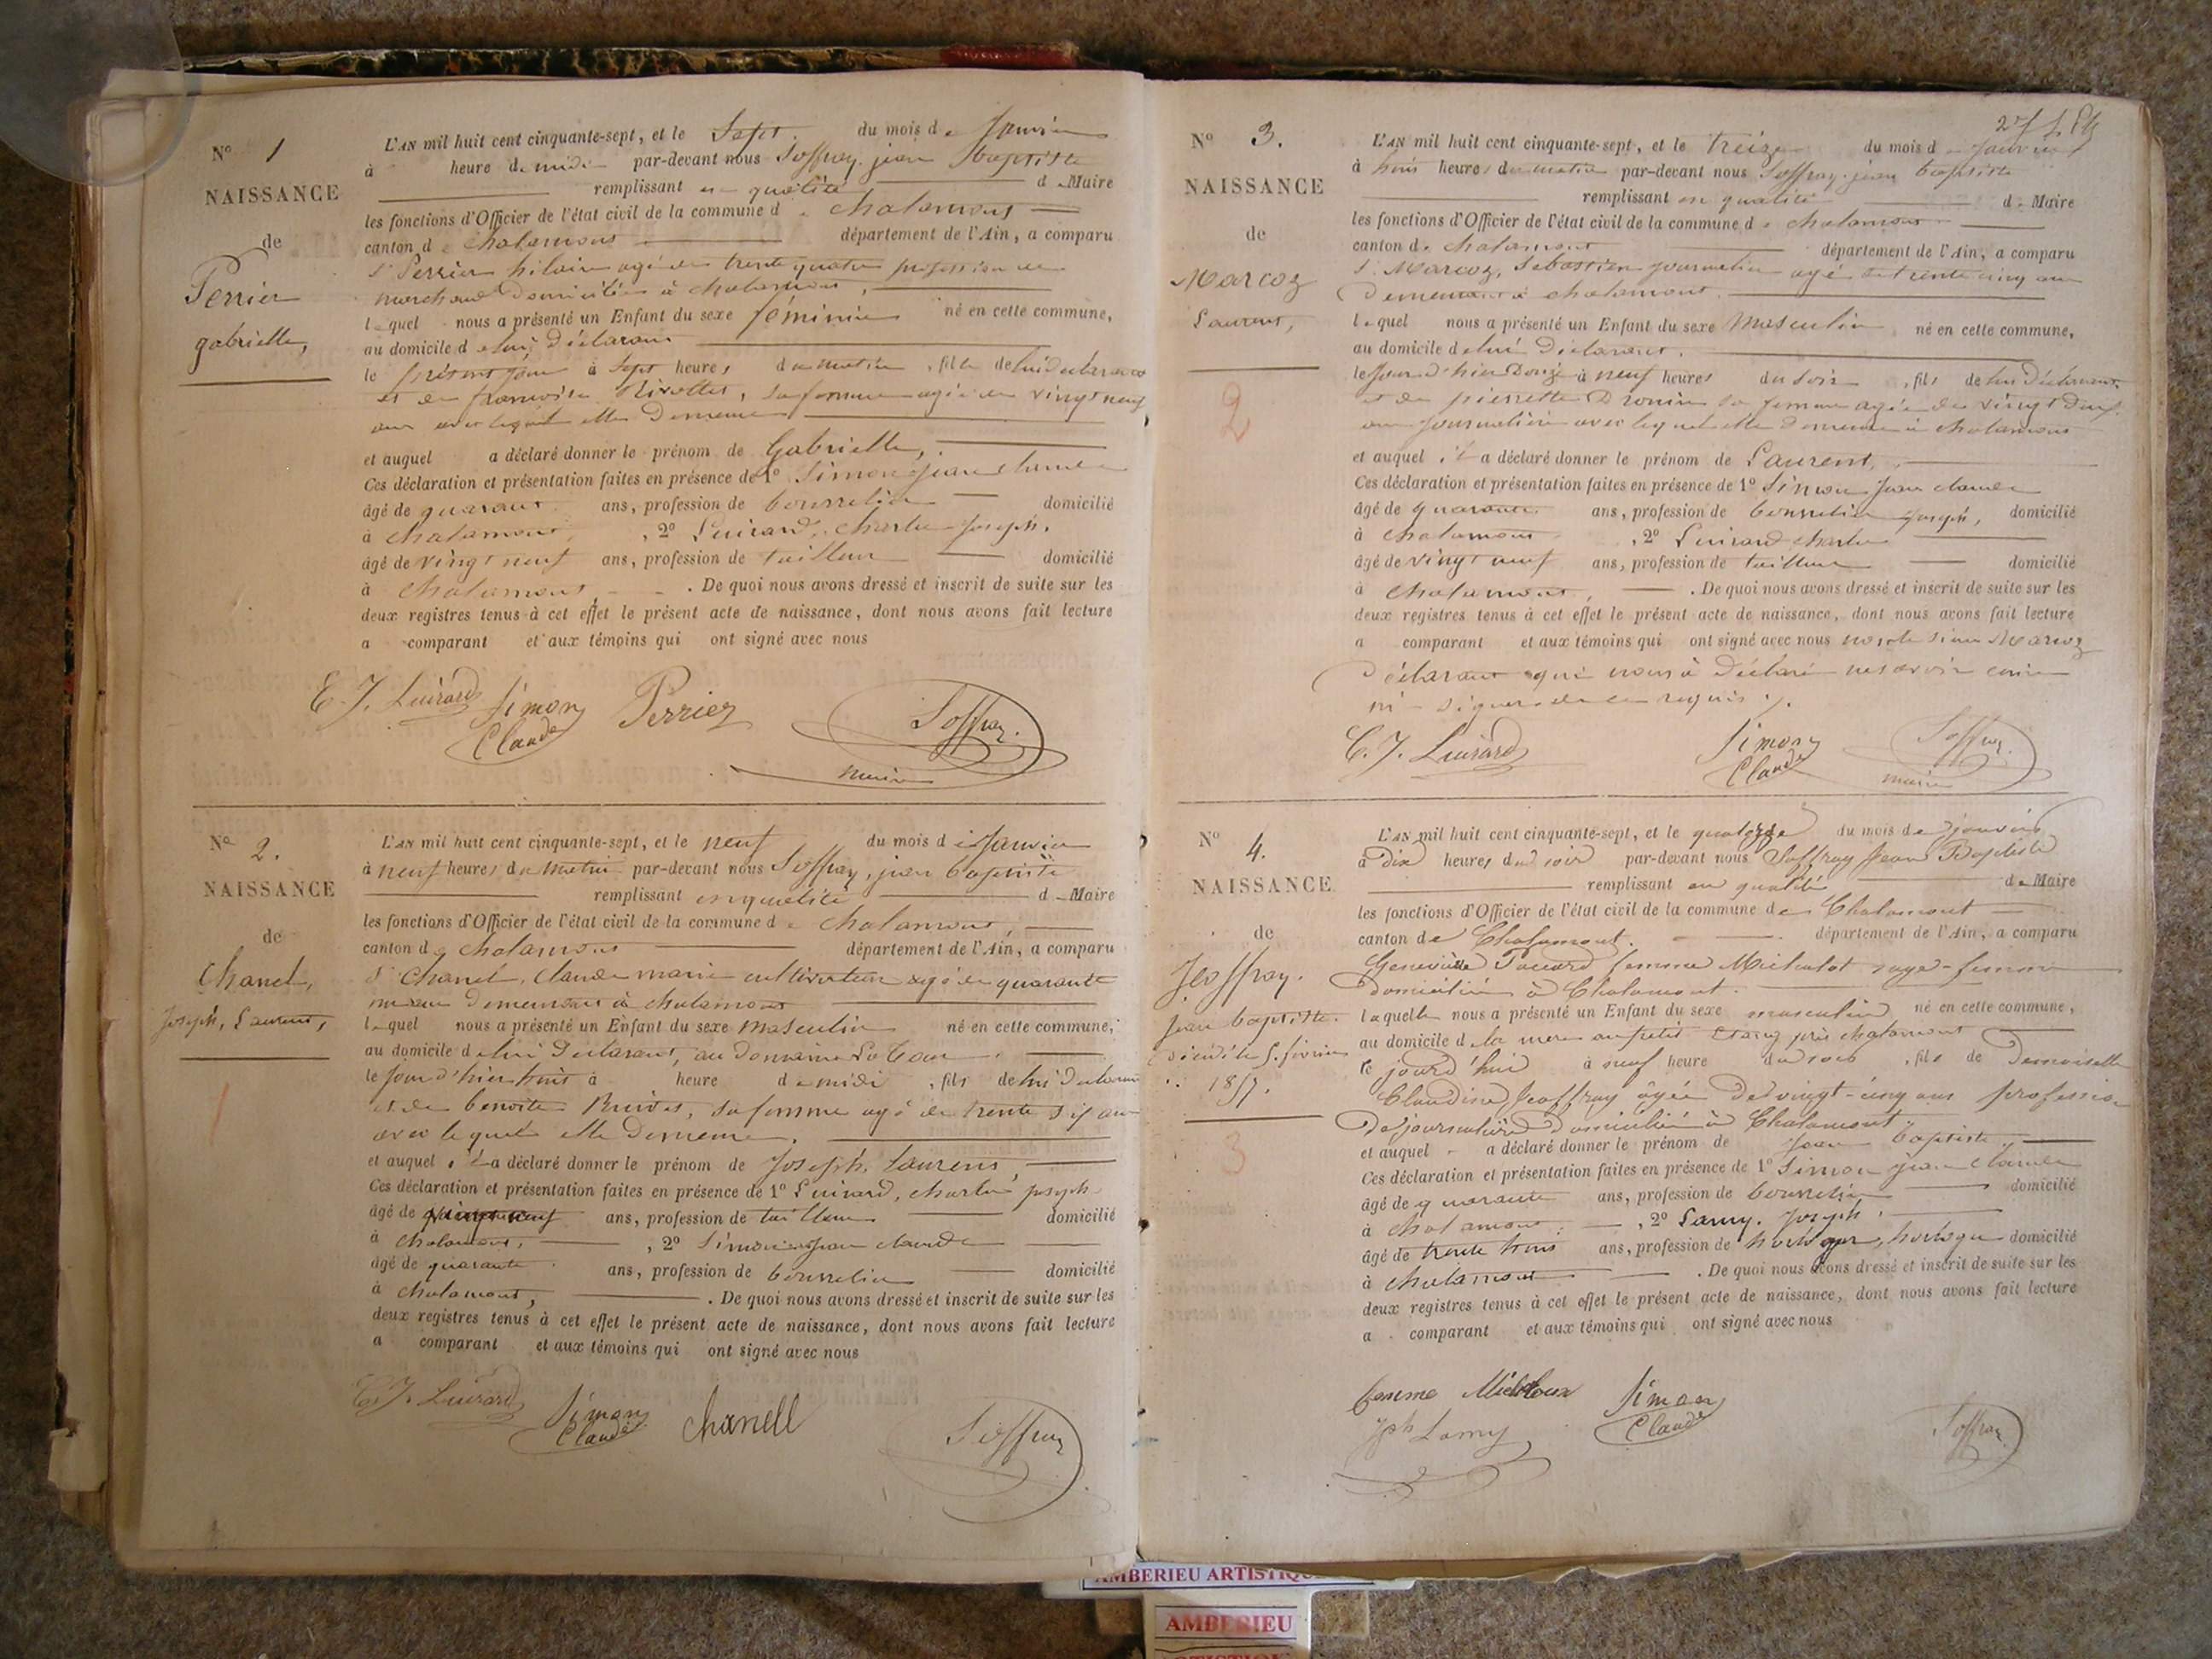 N° 1
NAISSANCE
de
Perrier
gabrielle,
L'AN mil huit cent cinquante-sept, et le Sept du mois de Janvier
à heure de midi par-devant nous Joffray jean baptiste
remplissant en qualité de Maire
les fonctions d'Officier de l'état civil de la commune de chalamont
canton de chalamont département de l'Ain, a comparu
s. Perrier hilaire agé de trente quatre profession de
marchand domicilié à chalamont,
lequel nous a présenté un Enfant du sexe féminin né en cette commune,
au domicile de lui déclarant
le présent jour à Sept heures du matin, fille de lui déclarant
et de francoise Rivollet, sa femme agée de vingt neuf
ans avec lequel elle demeure
et auquel a déclaré donner le prénom de Gabrielle,
Ces déclaration et présentation faites en présence de 1° Simon Jean claude
âgé de quarante ans, profession de bourrelier domicilié
à chalamont, 2° Luirard, charles Joseph.
âgé de vingt neuf ans, profession de tailleur domicilié
à chalamont, . De quoi nous avons dressé et inscrit de suite sur les
deux registres tenus à cet effet le présent acte de naissance, dont nous avons fait lecture
a comparant et aux témoins qui ont signé avec nous
C. J. Luirard Simon Claude Perrier Joffray
maire
N° 2.
NAISSANCE
de
Chanel,
Joseph, Laurent,
1
L'AN mil huit cent cinquante-sept, et le neuf du mois de Janvier
à neuf heures du matin par-devant nous Joffray, jean baptiste
remplissant en qualité de Maire
les fonctions d'Officier de l'état civil de la commune de chalamont,
canton de chalamont département de l'Ain, a comparu
s. Chanel, claude marie cultivateur agé de quarante
demeurant à chalamont
lequel nous a présenté un Enfant du sexe masculin né en cette commune,
au domicile de lui déclarant, au domaine
le jour d'hier huit à heure de midi, fils de lui déclarant
et de benoite sa femme agé de trente six ans
avec lequel elle demeure.
et auquel il a déclaré donner le prénom de Joseph, Laurent,
Ces déclaration et présentation faites en présence de 1° Luirard, charles joseph
âgé de vingt neuf ans, profession de tailleur domicilié
à chalamont, , 2° Simon Jean claude
âgé de quarante ans, profession de bourrelier domicilié
à chalamont, . De quoi nous avons dressé et inscrit de suite sur les
deux registres tenus à cet effet le présent acte de naissance, dont nous avons fait lecture
a comparant et aux témoins qui ont signé avec nous
C. J. Luirard Simon Claude chanell Joffray
N° 3.
NAISSANCE
de
Marcoz
Laurent,
2
L'AN mil huit cent cinquante-sept, et le treize du mois de janvier
à huit heures du matin par-devant nous Joffray jean baptiste
remplissant en qualité de Maire
les fonctions d'Officier de l'état civil de la commune de chalamont
canton de chalamont département de l'Ain, a comparu
s. Marcoz, Sebastien journalier agé de trente cinq ans
demeurant à chalamont.
lequel nous a présenté un Enfant du sexe Masculin né en cette commune,
au domicile de lui déclarant.
le jour d'hier Douze à neuf heures du soir, fils de lui déclarant
et de pierrette Dronin sa femme agée de vingt
ans journalière avec lequel elle demeure à chalamont
et auquel il a déclaré donner le prénom de Laurent,
Ces déclaration et présentation faites en présence de 1° Simon Jean claude
âgé de quarante ans, profession de bourrelier joseph, domicilié
à chalamont , 2° Luirard charles
âgé de vingt neuf ans, profession de tailleur domicilié
à chalamont, . De quoi nous avons dressé et inscrit de suite sur les
deux registres tenus à cet effet le présent acte de naissance, dont nous avons fait lecture
a comparant et aux témoins qui ont signé avec nous non le sieur Marcoz
déclarant qui nous à déclaré ne savoir écrire
ni signer de ce requis
C. J. Luirard Simon Claude Joffray
maire
N° 4.
NAISSANCE
de
Jeoffray.
jean baptiste.
décédé le 5. février
1857.
3
L'AN mil huit cent cinquante-sept, et le quatorze du mois de janvier
à Dix heures du soir par-devant nous Joffray Jean Baptiste
remplissant en qualité de Maire
les fonctions d'Officier de l'état civil de la commune de Chalamont
canton de Chalamont. département de l'Ain, a comparu
Geneviève femme sage-femme
domiciliée à Chalamont.
laquelle nous a présenté un Enfant du sexe masculin né en cette commune,
au domicile de la mere au petit Etang près chalamont
le jourd'hui à neuf heure du soir, fils de Demoiselle
Claudine Jeoffray âgée de vingt-cinq ans profession
de journalière domiciliée à Chalamont.
et auquel a déclaré donner le prénom de Jean baptiste.
Ces déclaration et présentation faites en présence de 1° Simon jean claude
âgé de quarante ans, profession de bourrelier domicilié
à chalamont. , 2° Lamy. Joseph.
âgé de trente trois ans, profession de horloger domicilié
à chalamont . De quoi nous avons dressé et inscrit de suite sur les
deux registres tenus à cet effet le présent acte de naissance, dont nous avons fait lecture
a comparant et aux témoins qui ont signé avec nous
femme Simon Claude
Jph Lamy Joffray
AMBERIEU ARTISTIQUE
AMBERIEU